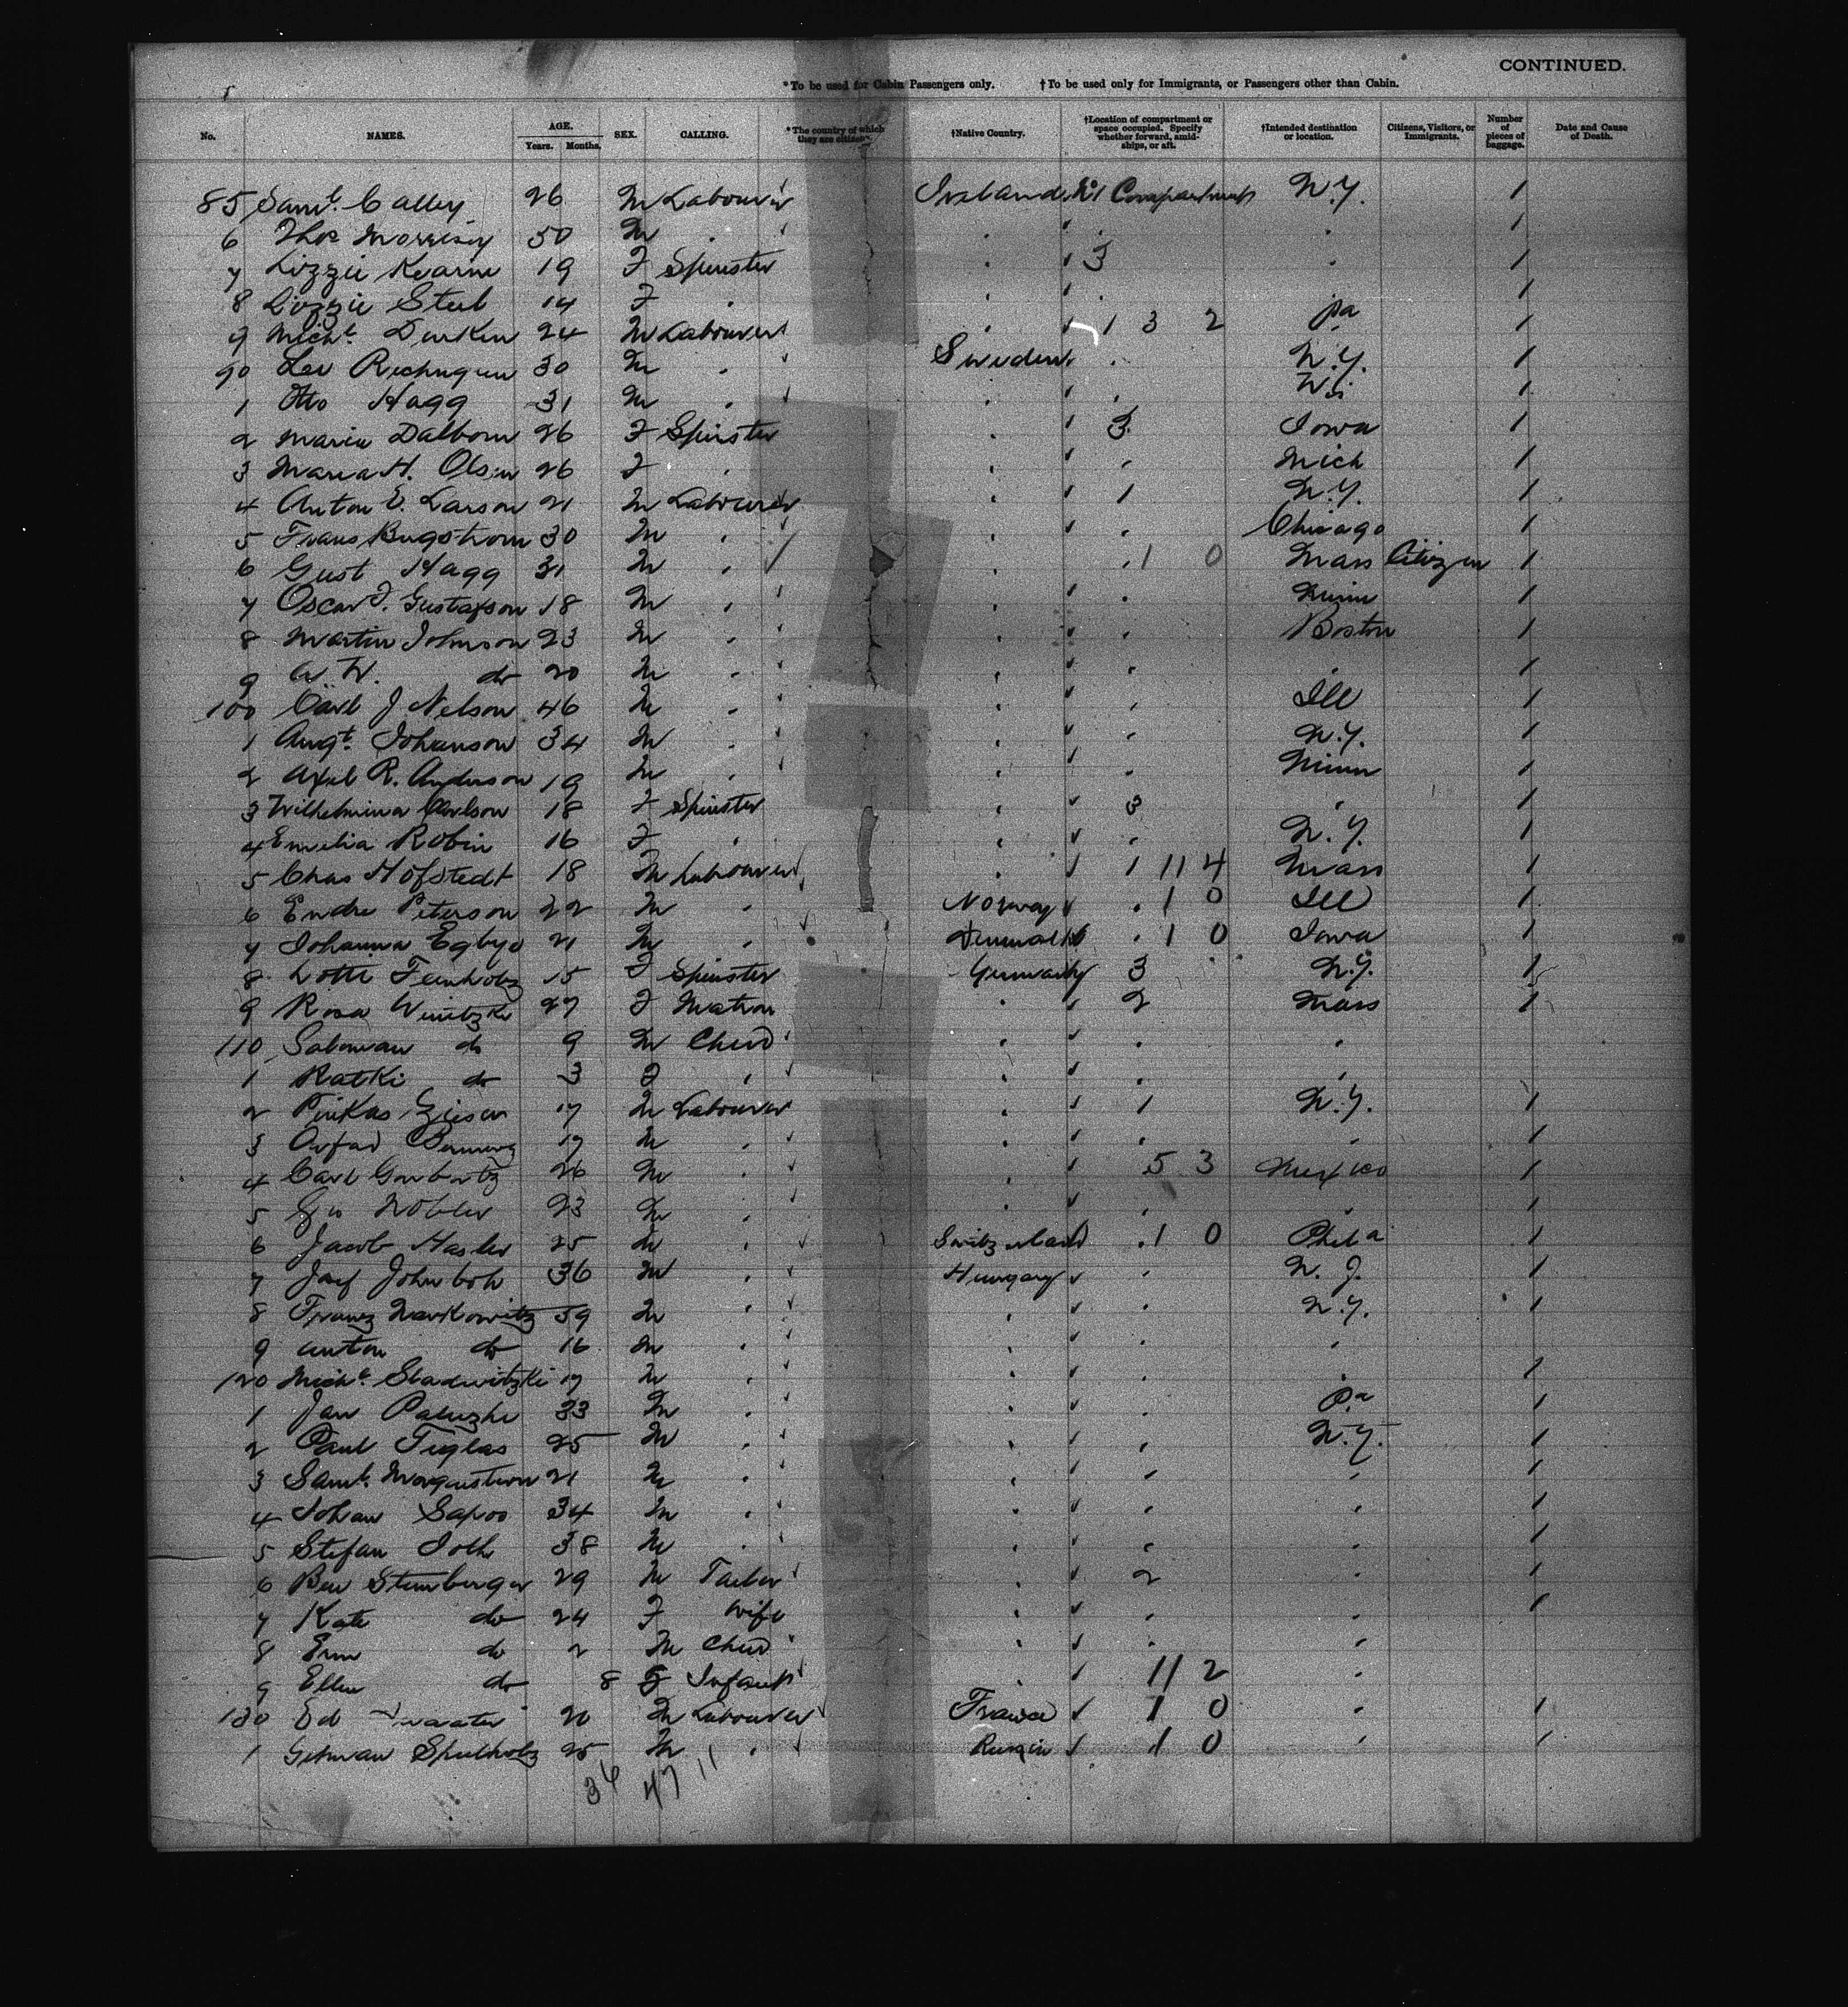 CONTINUED.
*To be used for Cabin Passengers only. †To be used only for Immigrants, or Passengers other than Cabin.
No. NAMES. AGE. Years. Months. SEX. CALLING. *The country of which they are citizens. †Native Country. †Location of compartment or space occupied. Specify whether forward, amidships, or aft. †Intended destination or location. Citizens, Visitors, or Immigrants. Number of pieces of baggage. Date and Cause of Death.
85 Saml. Calley 26 M Labourer Ireland No 1 Compartment N.Y. 1
6 Thos Morrisey 50 M " " " " 1
7 Lizzie Kearin 19 F Spinster " 3 " 1
8 Lizzie Steel 14 F " " " 1
9 Michl. Durken 24 M Labourer " 1 3 2 Pa 1
90 30 M " Sweden " N.Y. 1
1 Otto Hagg 31 M " " " Wis 1
2 Maria Dalborn 26 F Spinster " 3 Iowa 1
3 Maria H. Olsen 26 F " " " Mich 1
4 Anton E. Larson 21 M Labourer " 1 N.Y. 1
5 Frans Bugstrom 30 M " " " Chicago 1
6 Gust Hagg 31 M " " 1 0 Mass Citizen 1
7 Oscar J. Gustafson 18 M " " " Minn 1
8 Martin Johnson 23 M " " " Boston 1
9 A. W. do 20 M " " " " 1
100 Carl J Nelson 46 M " " " Ill 1
1 Augt. Johanson 34 M " " " N.Y. 1
2 Axel R. Anderson 19 M " " " Minn 1
3 Wilhelmina Carlson 18 F Spinster " 3 " 1
4 Emelia Robin 16 F " " " N.Y. 1
5 Chas Hofstedt 18 M Labourer " 1 11 4 Mass 1
6 Endre Peterson 22 M " Norway " 1 0 Ill 1
7 Johanna 21 M " Denmark " 1 0 Iowa 1
8 Lotte 15 F Spinster Germany 3 N.Y. 1
9 Rosa Winitzki 27 F Matron " 2 Mass 1
110 Saloman do 9 M Child " " "
1 Ratki do 3 F " " " "
2 Pinkas 17 M Labourer " 1 N.Y. 1
3 17 M " " " " 1
4 Carl 26 M " " 5 3 Mexico 1
5 23 M " " " " 1
6 Jacob Hasler 25 M " Switzerland " 1 0 Phila 1
7 36 M " Hungary " N.J. 1
8 Franz Markowitz 59 M " " " N.Y. 1
9 Anton do 16 M " " " "
120 Michl. Sladwitzki 17 M " " " " 1
1 Jan 33 M " " " Pa 1
2 Paul Tiglas 25 M " " " N.Y. 1
3 Saml. Morgenstern 21 M " " " " 1
4 Johan Sapos 34 M " " " " 1
5 Stefan 38 M " " " " 1
6 Ben Sternberger 29 M Tailor " 2 " 1
7 Kate do 24 F Wife " " " 1
8 do 2 M Child " " "
9 Ellen do 8 F Infant " 11 2 "
130 Ed 20 M Labourer France 1 0 " 1
1 25 M " Russia 1 0 " 1
36 47 11